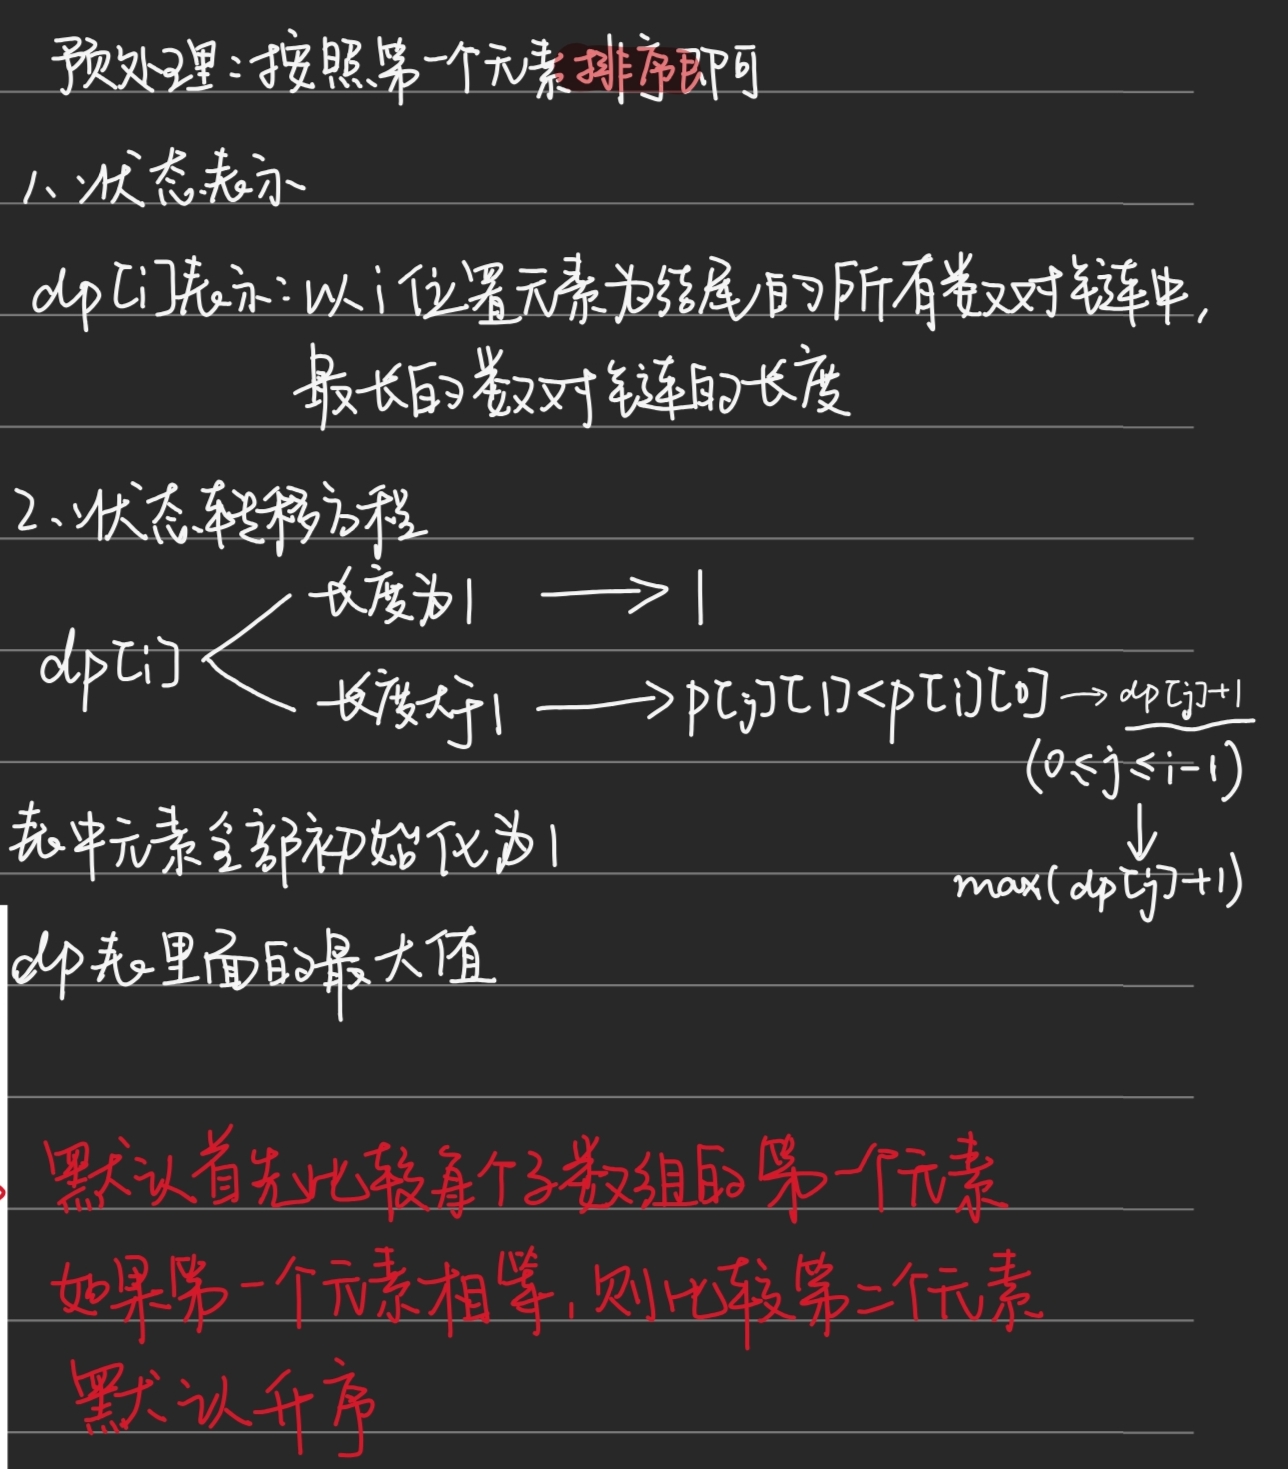 预处理:按照第一个元素排序即可
1、状态表示
dp[i]表示:以i位置元素为结尾的所有数对链中,
最长的数对链的长度
2、状态转移方程
长度为1 → 1
dp[i]
长度大于1 → p[j][1]<p[i][0] → dp[j]+1
(0≤j≤i-1)
↓
表中元素全部初始化为1
max(dp[j]+1)
dp表里面的最大值
默认首先比较每个子数组的第一个元素
如果第一个元素相等,则比较第二个元素
默认升序